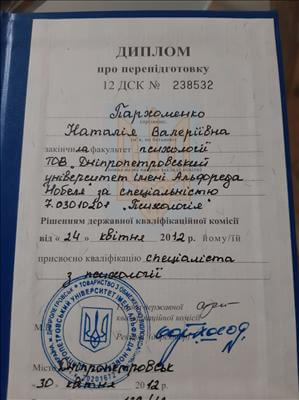 ДИПЛОМ
про перепідготовку
12 ДСК № 238532
Пархоменко
Наталія Валеріївна
закінчила факультет психології
ТОВ „Дніпропетровський
університет імені Альфреда
Нобеля" за спеціальністю
7.03010201 „Психологія".
Рішенням державної кваліфікаційної комісії
від « 24 » квітня 2012 р. йому/їй
присвоєно кваліфікацію спеціаліста
з психології
Голова державної
кваліфікаційної комісії
М.П.
Ректор
Місто Дніпропетровськ
30 квітня 2012 р.